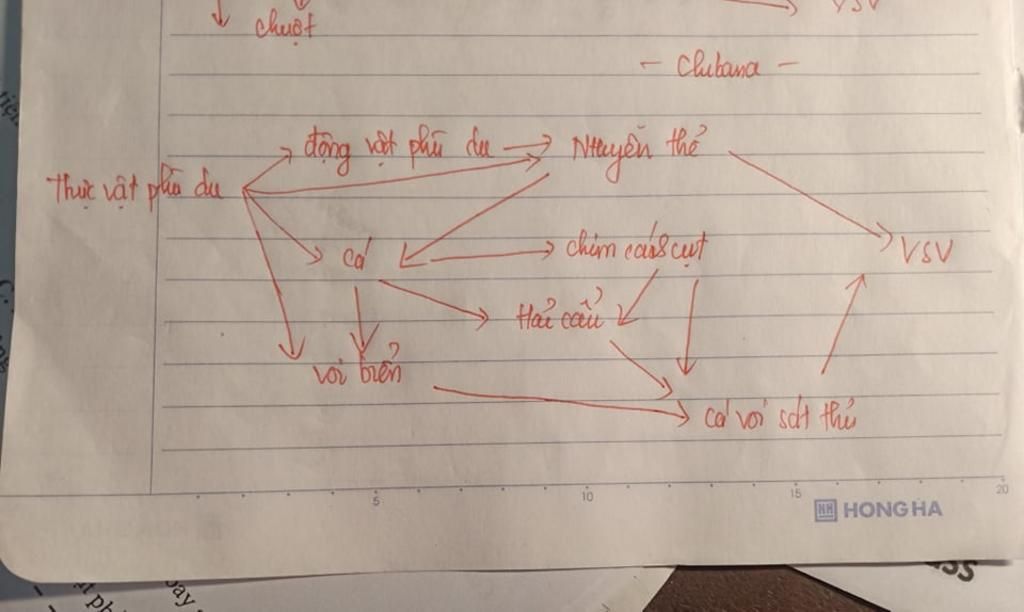 chuột
VSV
- Chibana -
động vật phù du
Nhuyễn thể
Thực vật phù du
cá
chim cánh cụt
VSV
Hải cẩu
voi biển
cá voi sát thủ
5 10 15 20
HH HONG HA